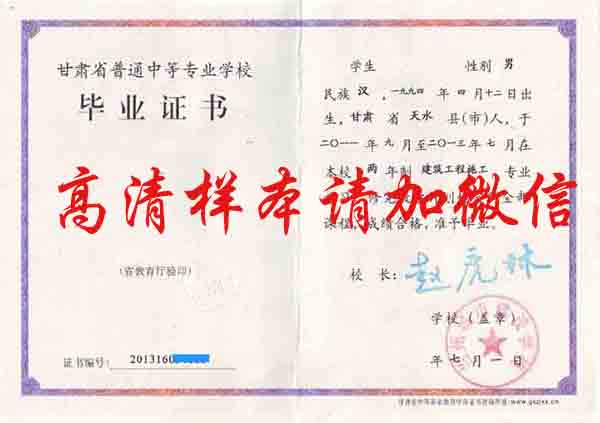 甘肃省普通中等专业学校
毕业证书
(省教育厅验印)
证书编号:
201316
学生 性别 男
民族 汉,一九九四年 四月十二日出
生,甘肃 省 天水 县(市)人,于
二〇一一年 九 月至二〇一三年 七 月在
本校 两 年制 建筑工程施工 专业
高清样本请加微信
课程,成绩合格,准予毕业。
校 长:
学校(盖章)
年 七 月 一 日